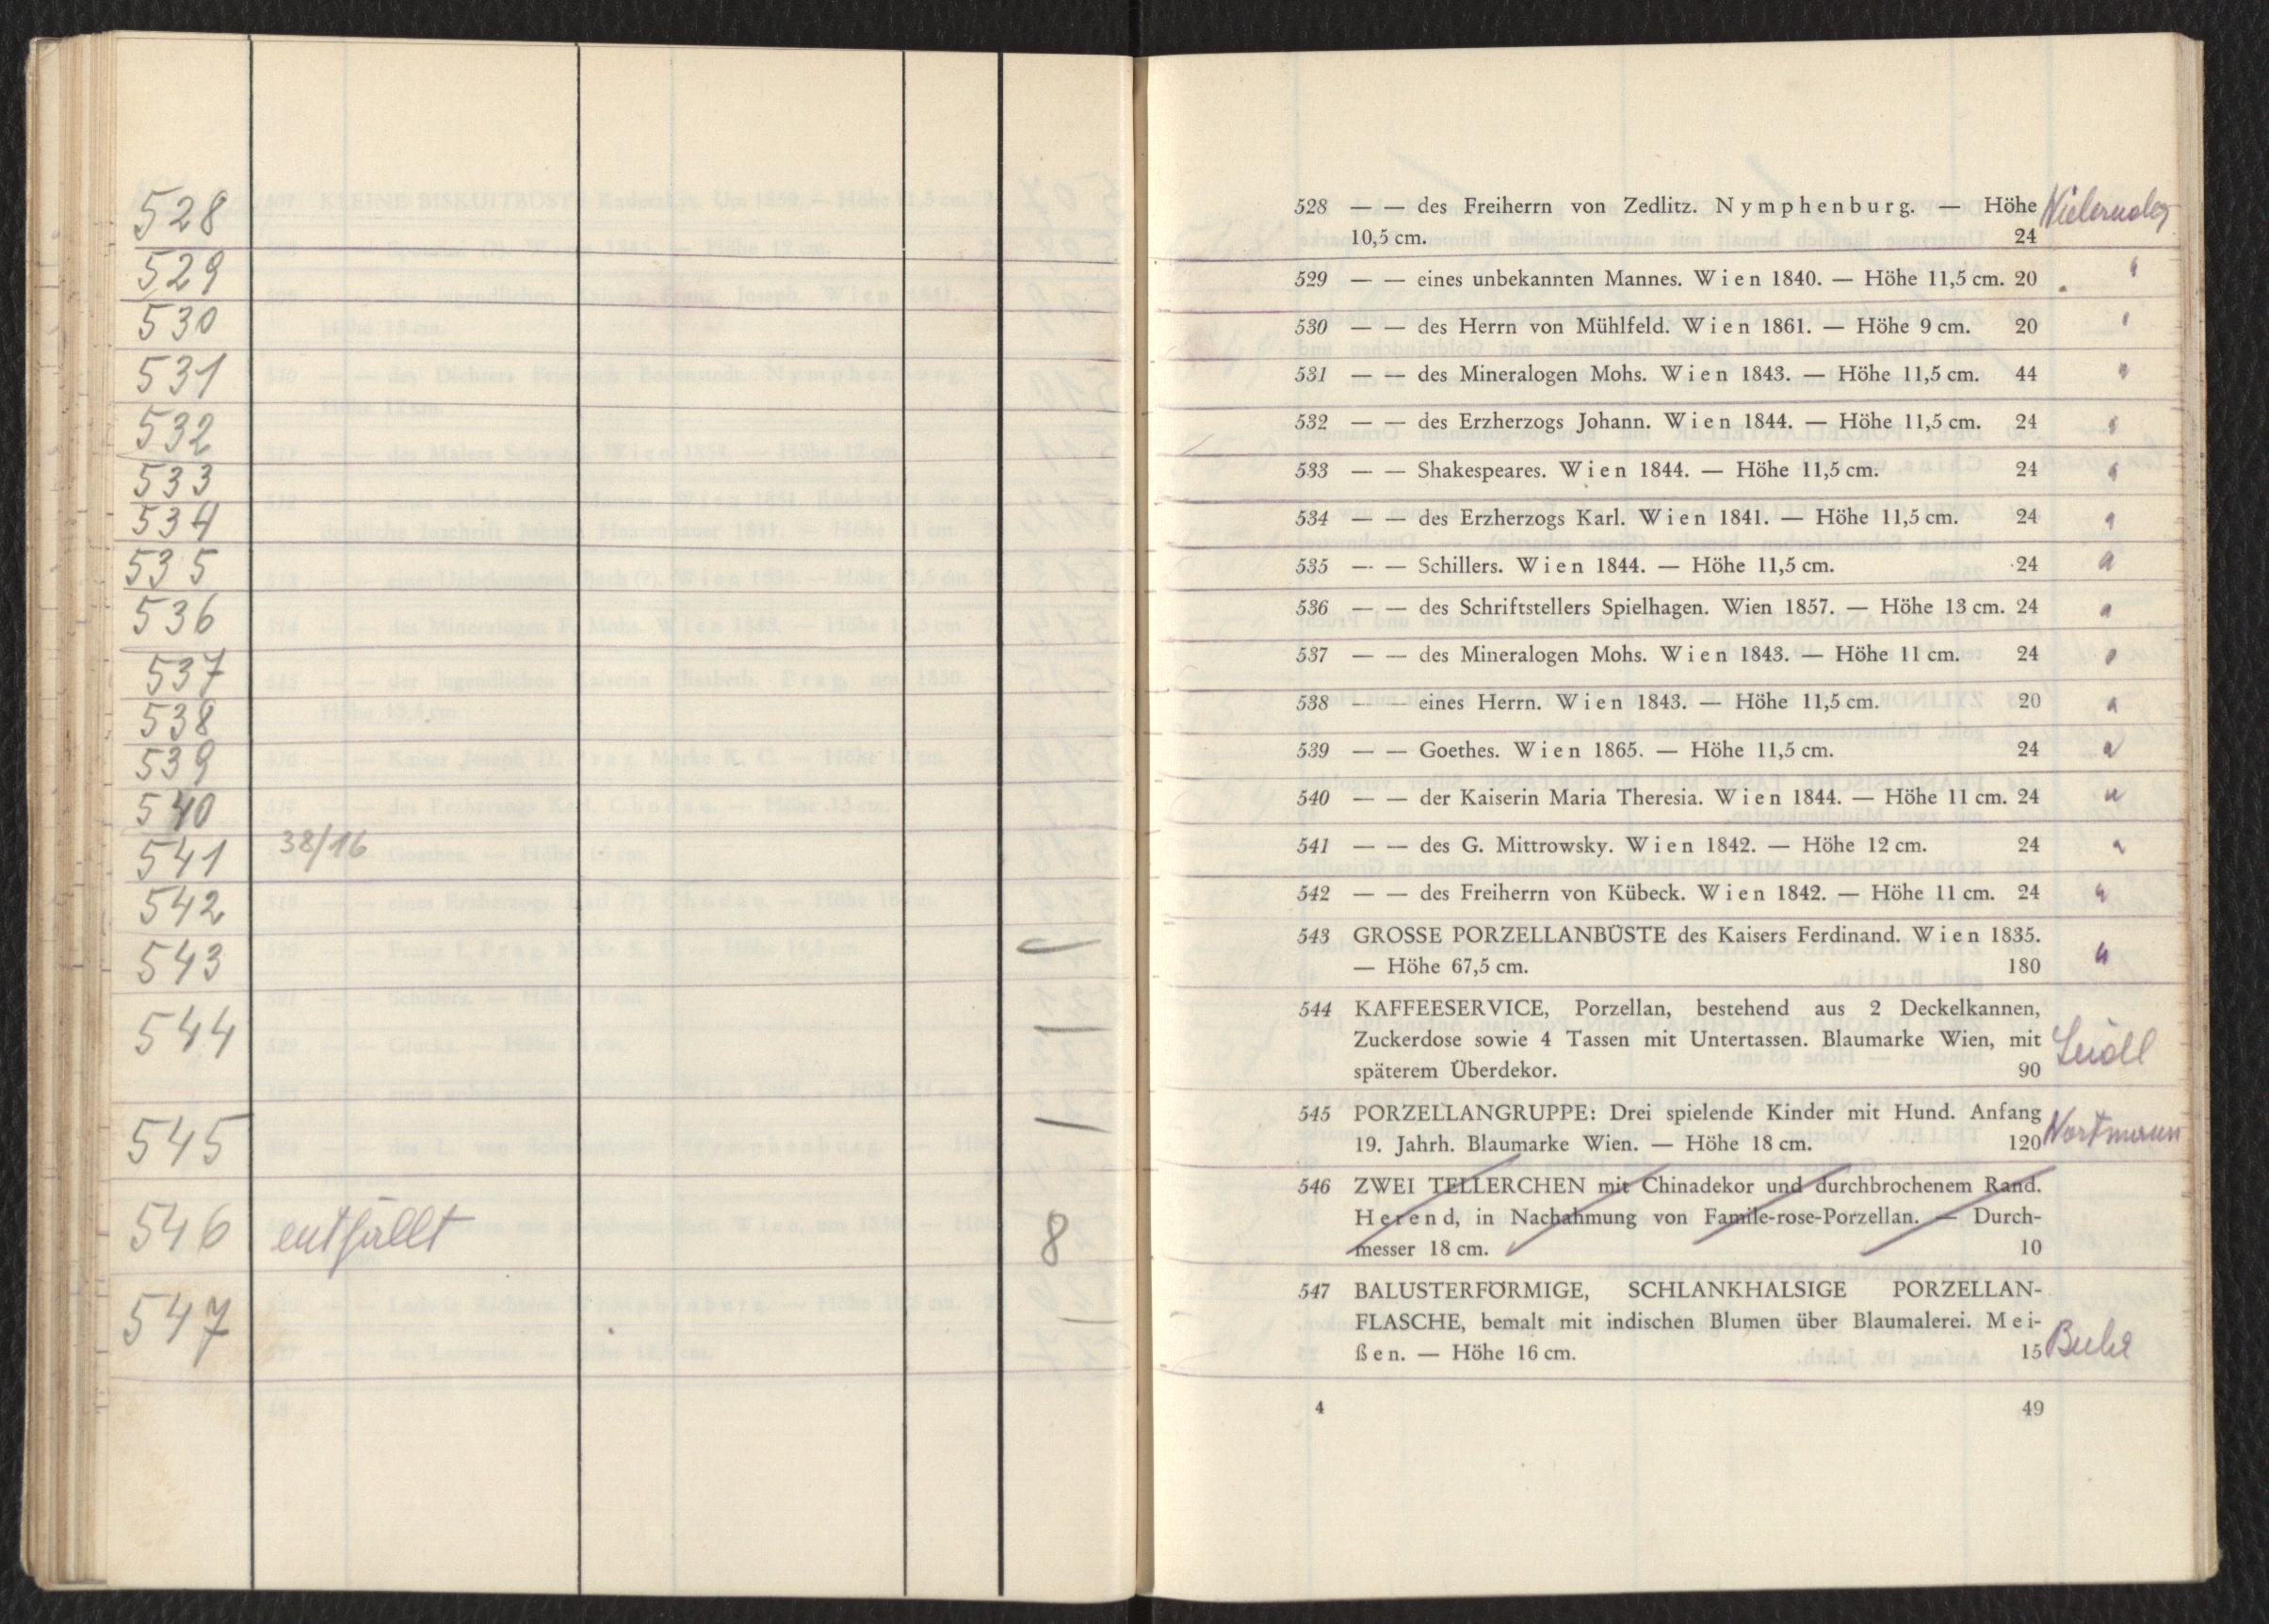 528
529
530
531
532
533
534
535
536
537
538
539
540
541 38/16
542
543
544
545
546 entfällt 8
547
528 — — des Freiherrn von Zedlitz. Nymphenburg. — Höhe
10,5 cm. 24
529 — — eines unbekannten Mannes. Wien 1840. — Höhe 11,5 cm. 20
530 — — des Herrn von Mühlfeld. Wien 1861. — Höhe 9 cm. 20
531 — — des Mineralogen Mohs. Wien 1843. — Höhe 11,5 cm. 44
532 — — des Erzherzogs Johann. Wien 1844. — Höhe 11,5 cm. 24
533 — — Shakespeares. Wien 1844. — Höhe 11,5 cm. 24
534 — — des Erzherzogs Karl. Wien 1841. — Höhe 11,5 cm. 24
535 — — Schillers. Wien 1844. — Höhe 11,5 cm. 24
536 — — des Schriftstellers Spielhagen. Wien 1857. — Höhe 13 cm. 24
537 — — des Mineralogen Mohs. Wien 1843. — Höhe 11 cm. 24
538 — — eines Herrn. Wien 1843. — Höhe 11,5 cm. 20
539 — — Goethes. Wien 1865. — Höhe 11,5 cm. 24
540 — — der Kaiserin Maria Theresia. Wien 1844. — Höhe 11 cm. 24
541 — — des G. Mittrowsky. Wien 1842. — Höhe 12 cm. 24
542 — — des Freiherrn von Kübeck. Wien 1842. — Höhe 11 cm. 24
543 GROSSE PORZELLANBÜSTE des Kaisers Ferdinand. Wien 1835.
— Höhe 67,5 cm. 180
544 KAFFEESERVICE, Porzellan, bestehend aus 2 Deckelkannen,
Zuckerdose sowie 4 Tassen mit Untertassen. Blaumarke Wien, mit
späterem Überdekor. 90 Leidl
545 PORZELLANGRUPPE: Drei spielende Kinder mit Hund. Anfang
19. Jahrh. Blaumarke Wien. — Höhe 18 cm. 120 Wortmann
546 ZWEI TELLERCHEN mit Chinadekor und durchbrochenem Rand.
Herend, in Nachahmung von Famile-rose-Porzellan. — Durch-
messer 18 cm. 10
547 BALUSTERFÖRMIGE, SCHLANKHALSIGE PORZELLAN-
FLASCHE, bemalt mit indischen Blumen über Blaumalerei. Mei-
ßen. — Höhe 16 cm. 15
4 49